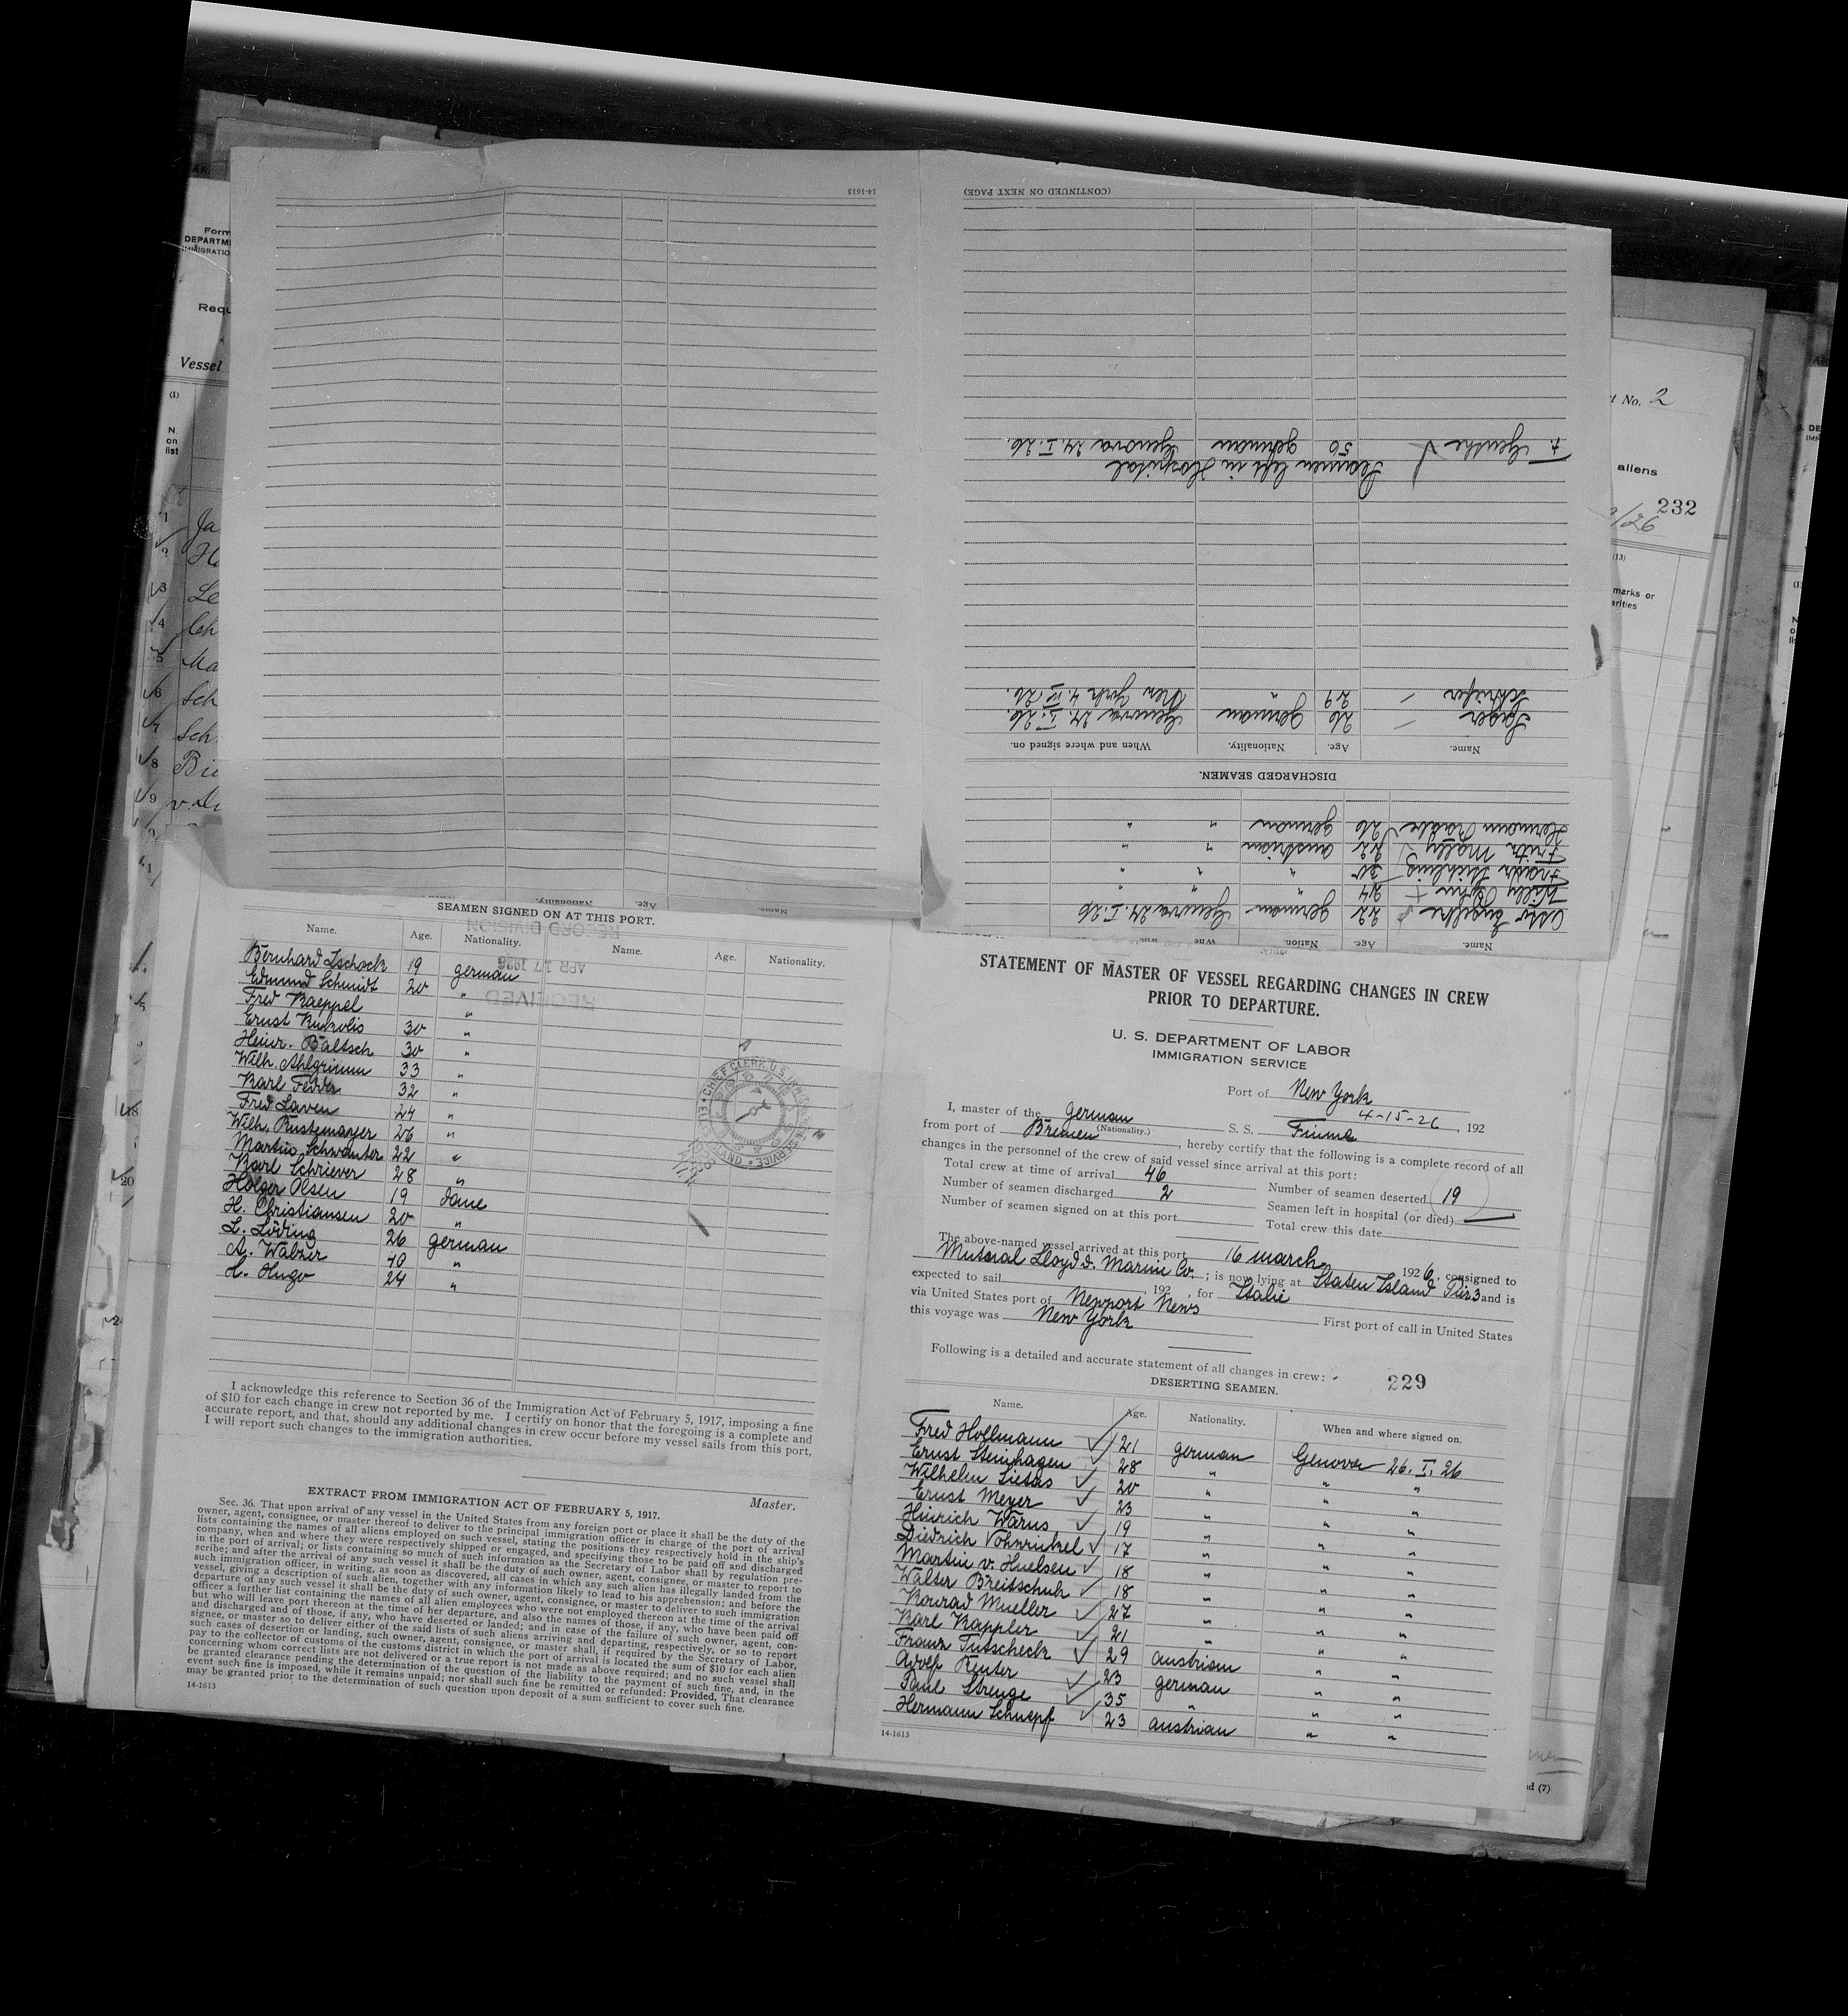 STATEMENT OF MASTER OF VESSEL REGARDING CHANGES IN CREW
PRIOR TO DEPARTURE.
U. S. DEPARTMENT OF LABOR
IMMIGRATION SERVICE
Port of New York
4-15-26, 192
I, master of the german S. S. Fiume
(Nationality.)
from port of Bremen, hereby certify that the following is a complete record of all
changes in the personnel of the crew of said vessel since arrival at this port:
Total crew at time of arrival 46 Number of seamen deserted 19
Number of seamen discharged 2 Seamen left in hospital (or died) —
Number of seamen signed on at this port Total crew this date
The above-named vessel arrived at this port 16 march, 1926, consigned to
Lloyd Marine Co.; is now lying at Staten Island Pier 3 and is
expected to sail, 192 , for Italie
via United States port of Newport News First port of call in United States
this voyage was New York
Following is a detailed and accurate statement of all changes in crew:
229
DESERTING SEAMEN.
Name. Age. Nationality. When and where signed on.
Fred Hollmann 21 german Genova 26. I. 26
Ernst Steinhagen 28 " " "
Wilhelm Sietas 20 " " "
Ernst Meyer 23 " " "
Hinrich Warus 19 " " "
Diedrich 17 " " "
Martin v. Huelsen 18 " " "
Walter Breitschuh 18 " " "
Konrad Mueller 27 " " "
Karl Kappler 21 " " "
Franz Tutscheck 29 austrian " "
Adolf Reuter 23 german " "
Paul Strenge 35 " " "
Hermann Schnepf 23 austrian " "
14-1613
Name. Age. Nation
Otto Engelke 22 german Genova 24. I. 26
Willy 24 " " "
Franz 30 " " "
Fritz Mally 22 austrian " "
Hermann Rädke 26 german " "
DISCHARGED SEAMEN.
Name. Age. Nationality. When and where signed on.
Jäger 26 german Genova 24. I. 26.
Schriefer 29 " New York 4. IV 26.
Seamen left in Hospital
F. Genthe 50 german Genova 24. I. 26.
(CONTINUED ON NEXT PAGE)
14-1613
SEAMEN SIGNED ON AT THIS PORT.
Name. Age. Nationality. Name. Age. Nationality.
Bernhard Zschock 19 german
Edmund Schmidt 20 "
Fred Kaeppel "
Ernst 30 "
Heinr. Baltsch 30 "
Wilh. Ahlgrimm 33 "
Karl Fedder 32 "
Fred Laven 24 "
Wilh. Rustemayer 26 "
Martin Schwanter 22 "
Karl Schriever 28 "
Holger Olsen 19 dane
H. Christiansen 20 "
L. Löding 26 german
A. Walzer 40 "
H. Hugo 24 "
RECEIVED
APR 17 1926
RECORD DIVISION
I acknowledge this reference to Section 36 of the Immigration Act of February 5, 1917, imposing a fine
of $10 for each change in crew not reported by me. I certify on honor that the foregoing is a complete and
accurate report, and that, should any additional changes in crew occur before my vessel sails from this port,
I will report such changes to the immigration authorities.
Master.
EXTRACT FROM IMMIGRATION ACT OF FEBRUARY 5, 1917.
Sec. 36. That upon arrival of any vessel in the United States from any foreign port or place it shall be the duty of the
owner, agent, consignee, or master thereof to deliver to the principal immigration officer in charge of the port of arrival
lists containing the names of all aliens employed on such vessel, stating the positions they respectively hold in the ship's
company, when and where they were respectively shipped or engaged, and specifying those to be paid off and discharged
in the port of arrival; or lists containing so much of such information as the Secretary of Labor shall by regulation pre-
scribe; and after the arrival of any such vessel it shall be the duty of such owner, agent, consignee, or master to report to
such immigration officer, in writing, as soon as discovered, all cases in which any such alien has illegally landed from the
vessel, giving a description of such alien, together with any information likely to lead to his apprehension; and before the
departure of any such vessel it shall be the duty of such owner, agent, consignee, or master to deliver to such immigration
officer a further list containing the names of all alien employees who were not employed thereon at the time of the arrival
but who will leave port thereon at the time of her departure, and also the names of those, if any, who have been paid off
and discharged and of those, if any, who have deserted or landed; and in case of the failure of such owner, agent, con-
signee, or master so to deliver either of the said lists of such aliens arriving and departing, respectively, or so to report
such cases of desertion or landing, such owner, agent, consignee, or master shall, if required by the Secretary of Labor,
pay to the collector of customs of the customs district in which the port of arrival is located the sum of $10 for each alien
concerning whom correct lists are not delivered or a true report is not made as above required; and no such vessel shall
be granted clearance pending the determination of the question of the liability to the payment of such fine, and, in the
event such fine is imposed, while it remains unpaid; nor shall such fine be remitted or refunded: Provided, That clearance
may be granted prior to the determination of such question upon deposit of a sum sufficient to cover such fine.
14-1613
Vessel
No. 2
aliens
232